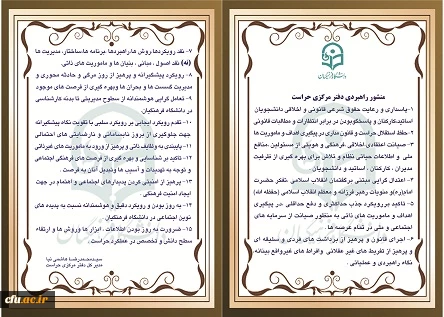 دانشگاه فرهنگیان
منشور راهبردی دفتر مرکزی حراست
۱- پاسداری و رعایت حقوق شرعی قانونی و اخلاقی دانشجویان
اساتید،کارکنان و پاسخگوبودن در برابر انتظارات و مطالبات قانونی
۲- حفظ استقلال حراست و قانون مداری در پیگیری اهداف و ماموریت ها
۳- صیانت اعتقادی ،اخلاقی ،فرهنگی و هویتی از مسئولین ،منافع
ملی و اطلاعات حیاتی نظام و تلاش برای بهره گیری از ظرفیت
دانشجویان ، کارکنان ، اساتید و مدافعین .
۴- اعتدال گرایی مبتنی برگفتمان انقلاب اسلامی ،تفکر حضرت
امام(ره)و منویات رهبر فرزانه و معظم انقلاب اسلامی (حفظه الله)
۵- تاکید بررویکرد جذب حداکثری و دفع حداقلی ،در پیگیری
اهداف و ماموریت های ذاتی به منظور صیانت از سرمایه های
اجتماعی و ملی در تمام عرصه ها .
۶- اجرای قانون و پرهیز از برداشت های فردی و سلیقه ای
و پرهیز از تفریط های غیر عقلانی وافراط های غیرواقع بینانه
نگاه راهبردی و عملیاتی .
۷- نقد رویکردها روش ها،راهبردها ،برنامه ها،ساختار، مدیریت ها
(نه) نقد اصول ، مبانی ، بنیان ها و ماموریت های ذاتی.
۸- رویکرد پیشگیرانه و پرهیز از روز مرگی و حادثه محوری و
مدیریت گسست ها و بحران ها وبهره گیری از فرصت های موجود
۹- تعامل گرایی هوشمندانه از سطوح مدیریتی تا بدنه کارشناسی
در دانشگاه فرهنگیان.
۱۰- تقدم رویکرد ایجابی بر رویکرد سلبی با تقویت نگاه پیشگیرانه
جهت جلوگیری از بروز نابسامانی و نارضایتی های احتمالی
۱۱- پایبندی به وظایف ذاتی و پرهیز از ورود به ماموریت های غیرذاتی
۱۲- تاکید بر شناسایی و بهره گیری از فرصت های فرهنگی اجتماعی
و توجه به تهدیدات و آسیب ها وتبدیل آنان به فرصت .
۱۳- پرهیز از امنیتی کردن پدیدهای اجتماعی و اهتمام در جهت
ایجاد امنیت فرهنگی.
۱۴- به روز بودن و رویکرد دقیق و هوشمندانه نسبت به پدیده های
نوین اجتماعی در دانشگاه فرهنگیان.
۱۵- ضرورت به روز بودن اطلاعات ، ابزار ها و روش ها و ارتقاء
سطح دانش و تخصص در عملکرد حراست .
سیدمحمدرضا هاشمی نیا
مدیر کل دفتر مرکزی حراست
cfu.ac.ir